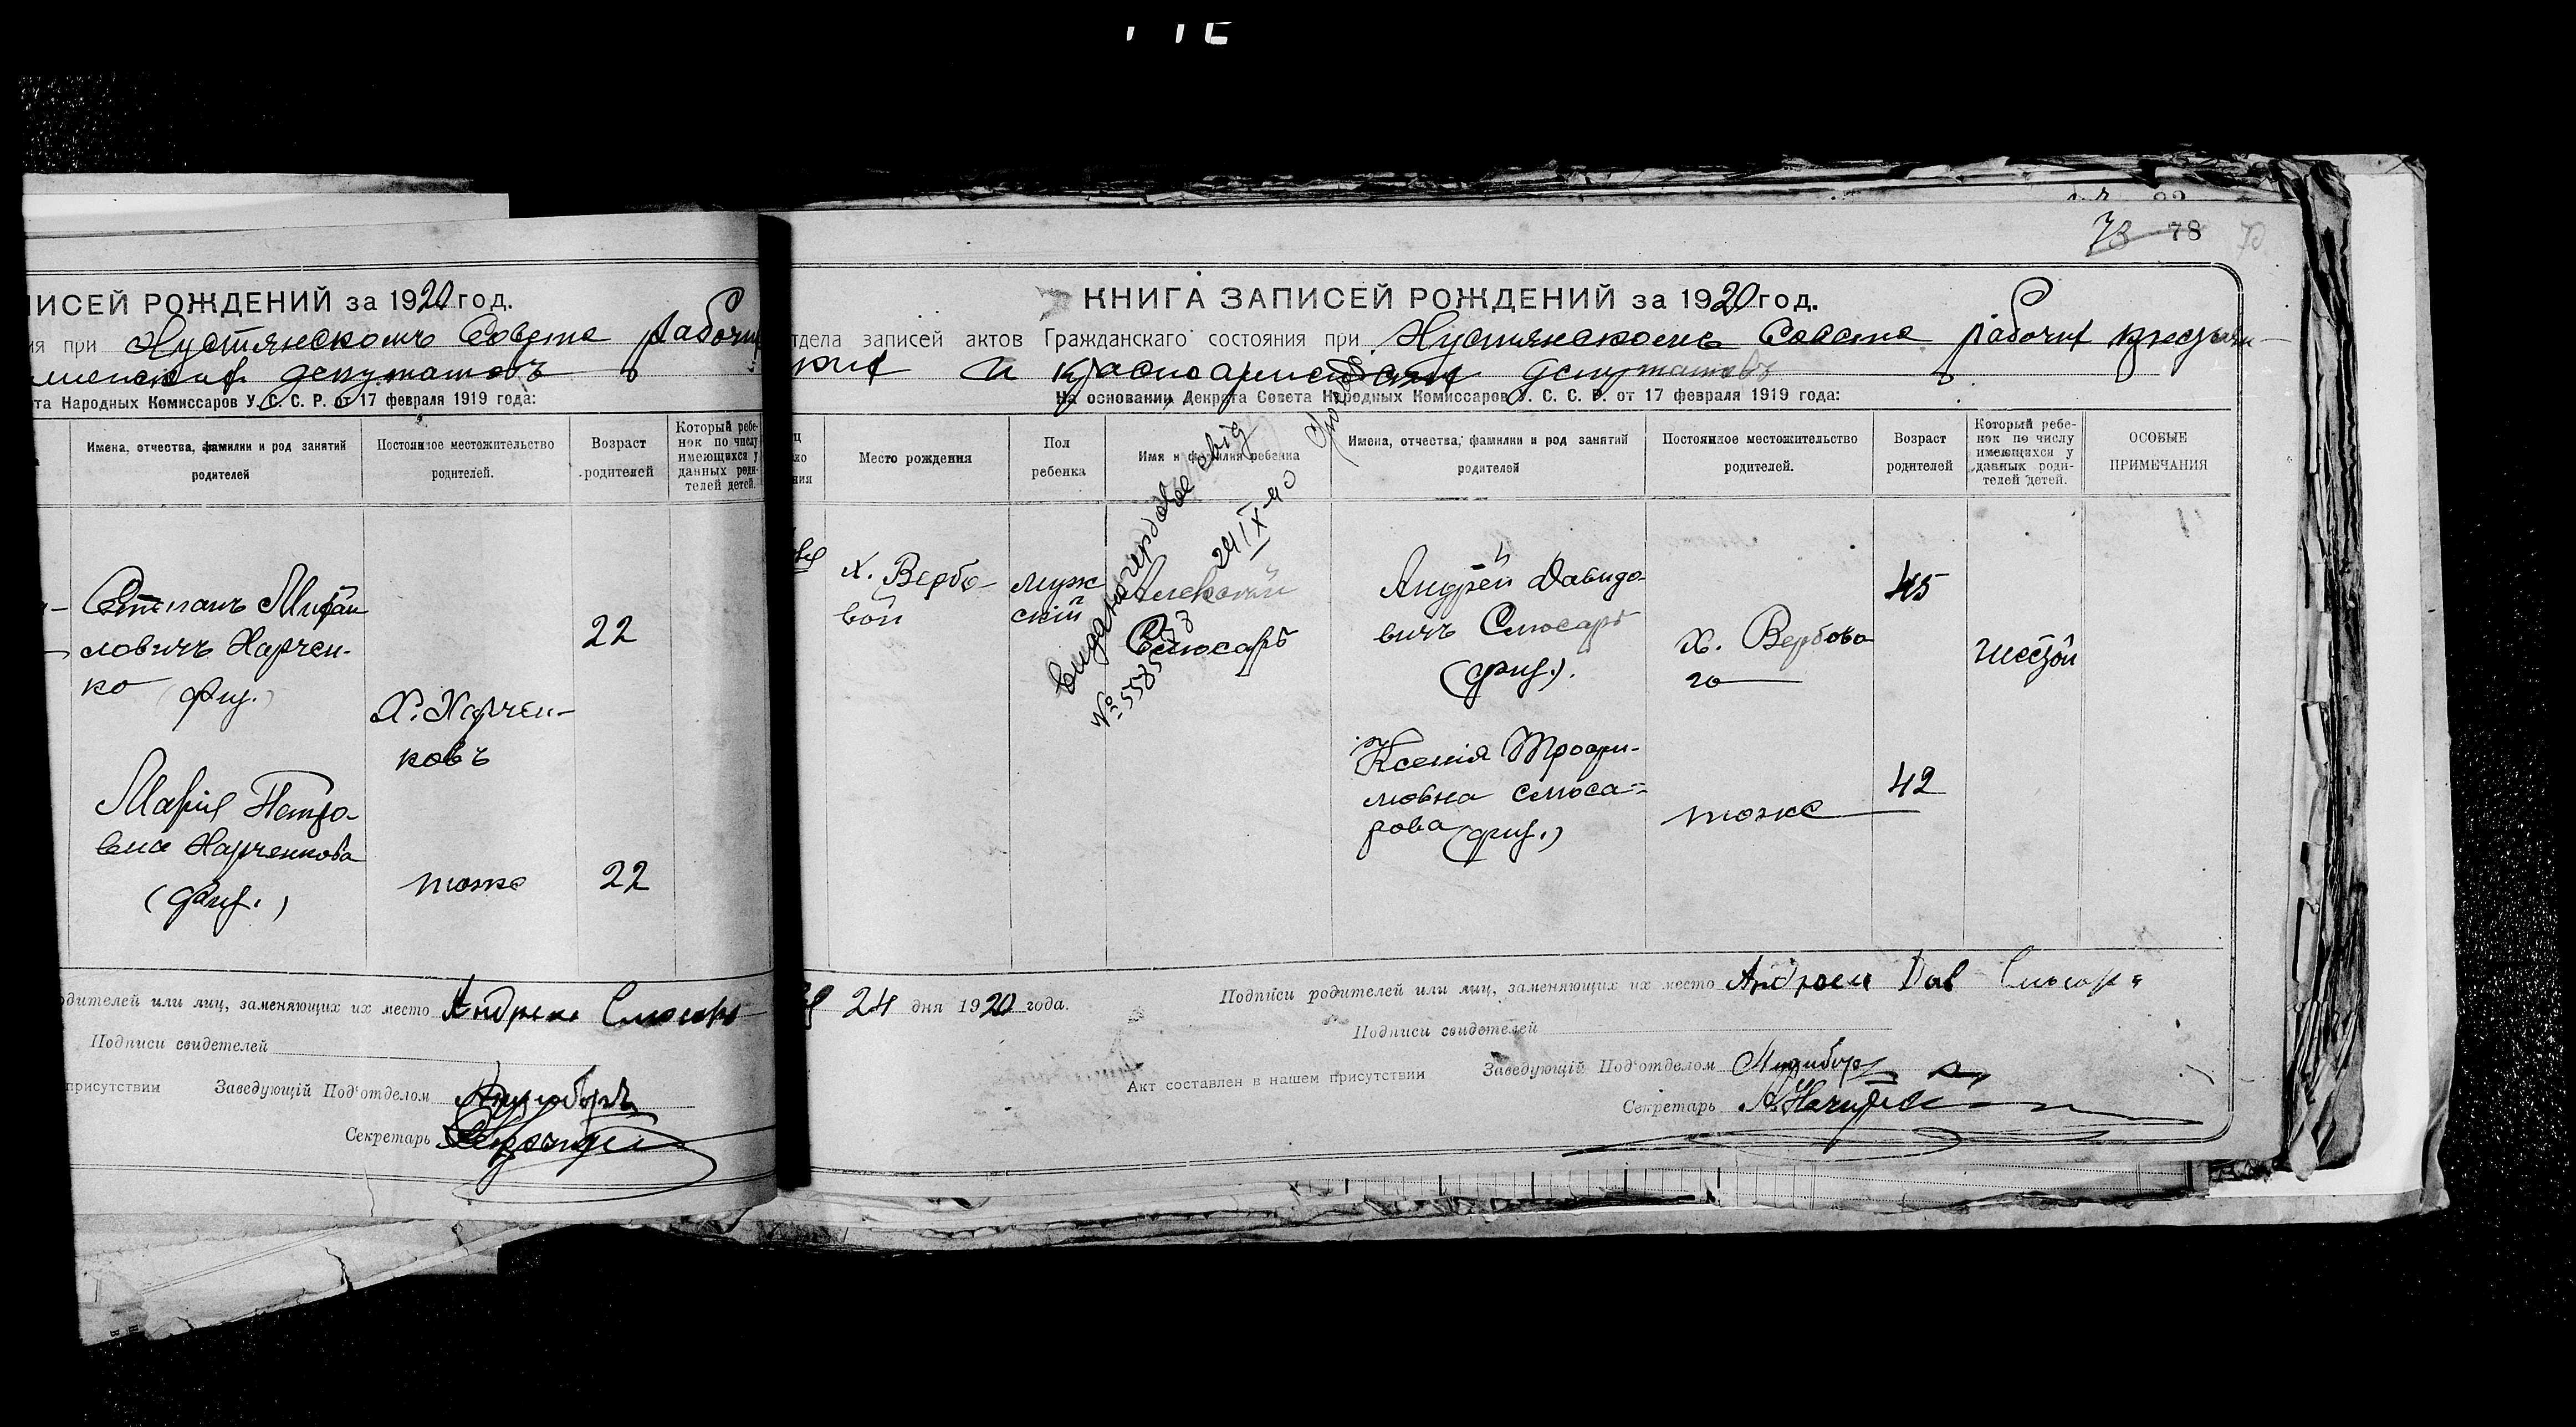 78 78 70
ИСЕЙ РОЖДЕНИЙ за 1920 год.
ия при Хустянскомъ Совете рабочи
депутатовъ
та Народных Комиссаров У. С. С. Р. от 17 февраля 1919 года:
Имена, отчества, фамилии и род занятий родителей
Постоянное местожительство родителей.
Возраст родителей
Который ребенок по числу имеющихся у данных родителей детей.
Степанъ Михай
ловичъ Харчен-
ко (физ.)
Х. Харчен-
ковъ
22
Марія Петро-
вна Харченкова
(физ.)
тоже
22
одителей или лиц, заменяющих их место Андрей Слюсарь
Подписи свидетелей
присутствии Заведующій Под'отделом
Секретарь
КНИГА ЗАПИСЕЙ РОЖДЕНИЙ за 1920 год.
тдела записей актов Гражданскаго состояния при Хустянскомъ Совете рабочих крестьян-
ких и красноармейских депутатовъ
На основании Декрета Совета Народных Комиссаров У. С. С. Р. от 17 февраля 1919 года:
Место рождения
Пол ребенка
Имя и фамилия ребенка
Имена, отчества, фамилии и род занятий родителей
Постоянное местожительство родителей.
Возраст родителей
Который ребенок по числу имеющихся у данных родителей детей.
ОСОБЫЕ ПРИМЕЧАНИЯ
х. Вербо-
вой
муж
скій
Алексей
Слюсарь
№ 5585
24/IX-40
Андрей Давидо-
вичъ Слюсарь
(физ.).
х. Вербово
го
45
шестой
Ксенія Трофи-
мовна Слюса-
рова (физ.)
тоже
42
24 дня 1920 года.
Подписи родителей или лиц, заменяющих их место Андрей Дав Слюсарь
Подписи свидетелей
Акт составлен в нашем присутствии Заведующій Под'отделом
Секретарь